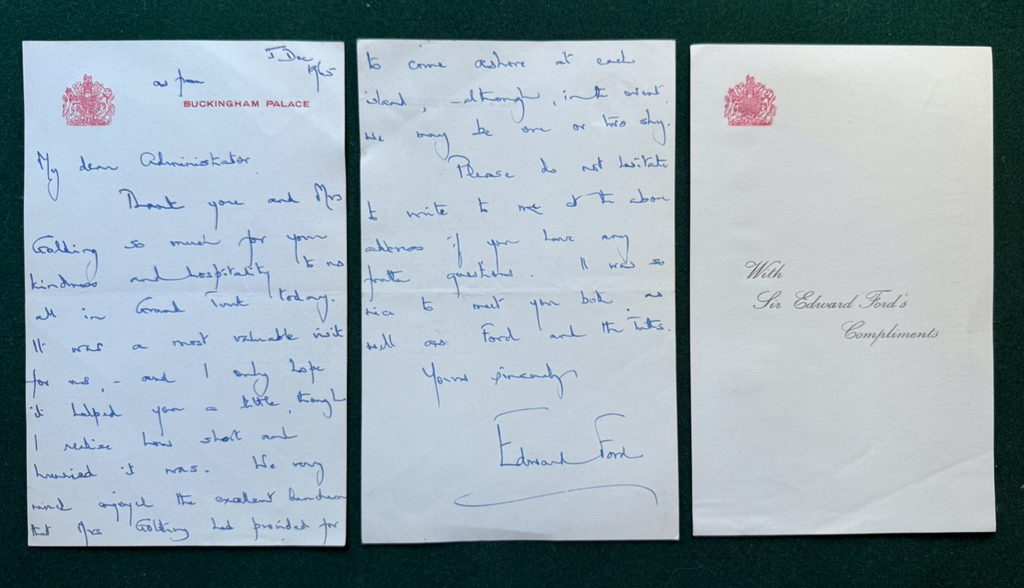 5 Dec
1965
as from
BUCKINGHAM PALACE
My dear Administrator
Thank you and Mrs
Golding so much for your
kindness and hospitality to us
all in Grand Turk today.
It was a most valuable visit
for us, - and I only hope
it helped you a little, though
I realise how short and
hurried it was. We very
much enjoyed the excellent luncheon
that Mrs Golding had provided for
to come ashore at each
island, - although, in the event
we may be one or two shy.
Please do not hesitate
to write to me at the above
address if you have any
further questions. It was so
nice to meet you both as
well as Ford and the
Yours sincerely
Edward Ford
With
Sir Edward Ford's
Compliments